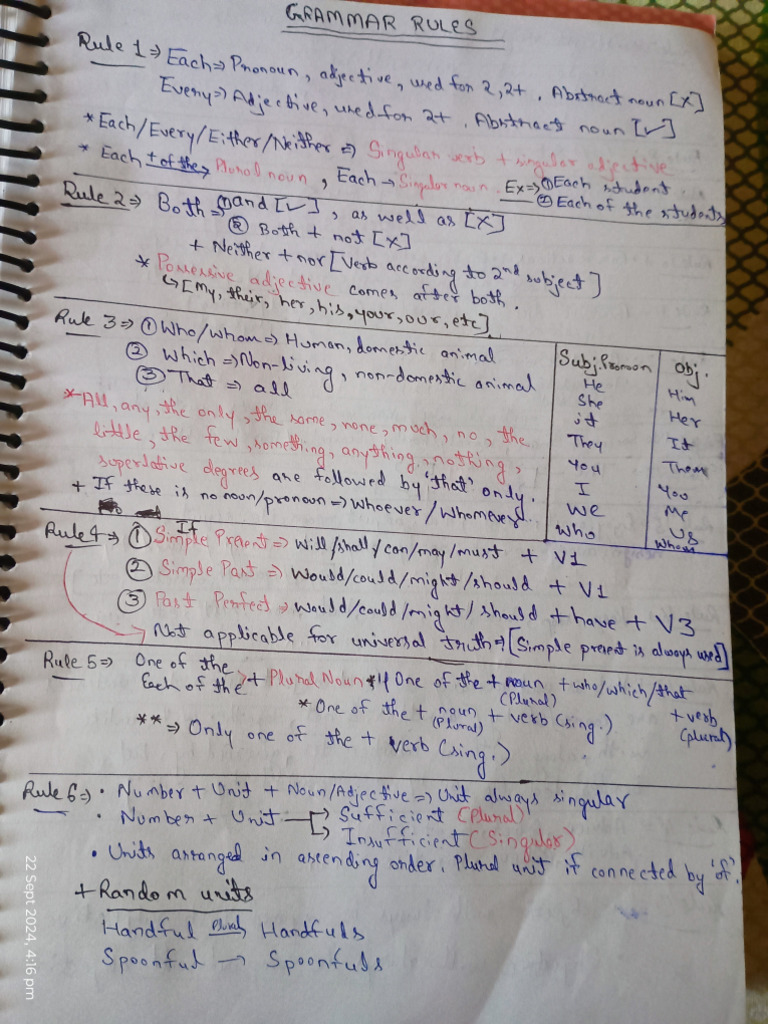 GRAMMAR RULES
Rule 1 ⇒ Each ⇒ Pronoun, adjective, used for 2, 2+. Abstract noun [×]
Every ⇒ Adjective, used for 2+. Abstract noun [✓]
* Each/Every/Either/Neither ⇒ Singular verb + singular adjective
* Each + of the → Plural noun, Each → Singular noun. Ex ⇒ ① Each student.
② Each of the students
Rule 2 ⇒ Both ⇒ ① and [✓], as well as [×]
② Both + not [×]
+ Neither + nor [Verb according to 2nd subject]
* Possessive adjective comes after both.
↳ [My, their, her, his, your, our, etc]
Rule 3 ⇒ ① Who/whom ⇒ Human, domestic animal
② Which ⇒ Non-living, non-domestic animal
③ That ⇒ all
* All, any, the only, the same, none, much, no, the
little, the few, something, anything, nothing,
superlative degrees are followed by 'that' only.
+ If there is no noun/pronoun ⇒ whoever/whomever
Subj. Pronoun Obj.
He Him
She Her
it It
They Them
You You
I Me
We Us
Who Whom
Rule 4 ⇒ If ① Simple Present ⇒ will/shall/can/may/must + V1
② Simple Past ⇒ Would/could/might/should + V1
③ Past Perfect ⇒ would/could/might/should + have + V3
Not applicable for universal truth ⇒ [Simple present is always used]
Rule 5 ⇒ One of the
Each of the + Plural Noun * One of the + noun (Plural) + who/which/that + verb (plural)
* One of the + noun (Plural) + verb (sing.)
** ⇒ Only one of the + verb (sing.)
Rule 6 ⇒ • Number + Unit + Noun/Adjective ⇒ Unit always singular
• Number + Unit → Sufficient (Plural)
→ Insufficient (Singular)
• Units arranged in ascending order. Plural unit if connected by 'of'.
+ Random units
Handful Plural → Handfuls
Spoonful → Spoonfuls
22 Sept 2024, 4:16 pm